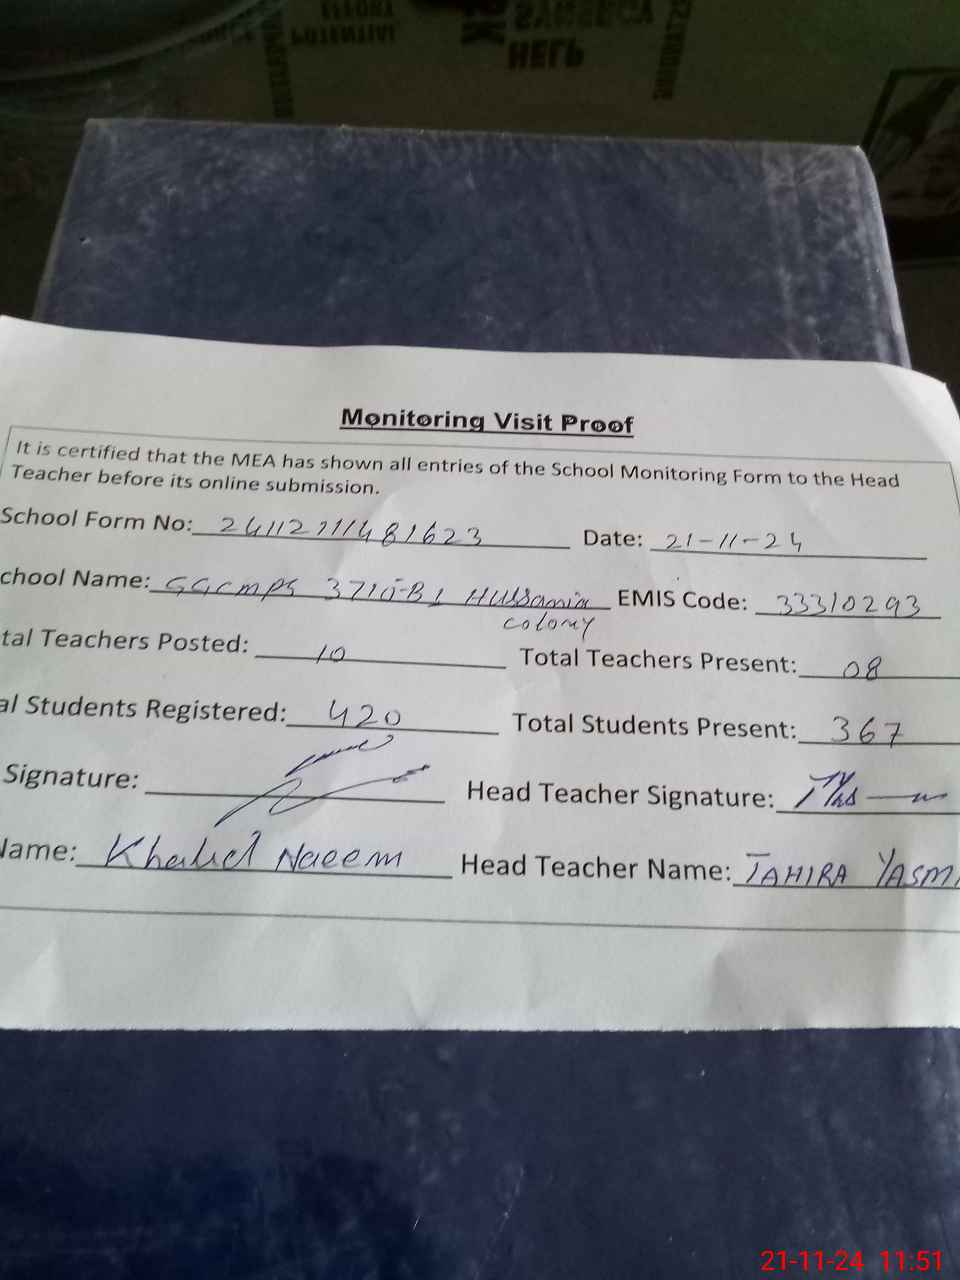 EFFORT
POTENTIAL
HELP
Monitoring Visit Proof
It is certified that the MEA has shown all entries of the School Monitoring Form to the Head
Teacher before its online submission.
School Form No: Date: 21-11-24
chool Name: GGCMPS Hussania EMIS Code: 33310293
colony
tal Teachers Posted: 10 Total Teachers Present: 08
al Students Registered: 420 Total Students Present: 367
Signature: Head Teacher Signature:
Name: Khalid Naeem Head Teacher Name: TAHIRA YASMI
21-11-24 11:51